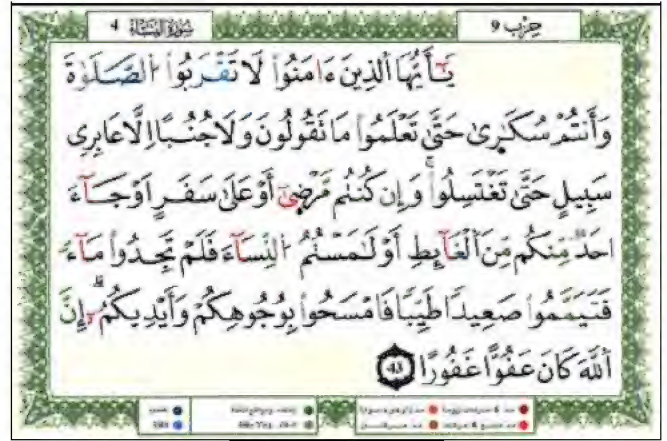 حِزْب 9
سُورَةُ النِّسَاءِ 4
يَـٰٓأَيُّهَا اَ۬لذِينَ ءَامَنُواْ لَا تَقْرَبُواْ اُ۬لصَّلَوٰةَ
وَأَنتُمْ سُكَـٰرِىٰ حَتَّىٰ تَعْلَمُواْ مَا تَقُولُونَ وَلَا جُنُبًا اِلَّا عَابِرِى
سَبِيلٍ حَتَّىٰ تَغْتَسِلُواْۖ وَإِن كُنتُم مَّرْضِىٰٓ أَوْ عَلَىٰ سَفَرٍ اَوْ جَآءَ
احَدٌ مِّنكُم مِّنَ اَ۬لْغَآئِطِ أَوْ لَـٰمَسْتُمُ اُ۬لنِّسَآءَ فَلَمْ تَجِدُواْ مَآءً
فَتَيَمَّمُواْ صَعِيدًا طَيِّبًا فَامْسَحُواْ بِوُجُوهِكُمْ وَأَيْدِيكُمُۥٓۖ إِنَّ
اَ۬للَّهَ كَانَ عَفُوًّا غَفُورًا 43